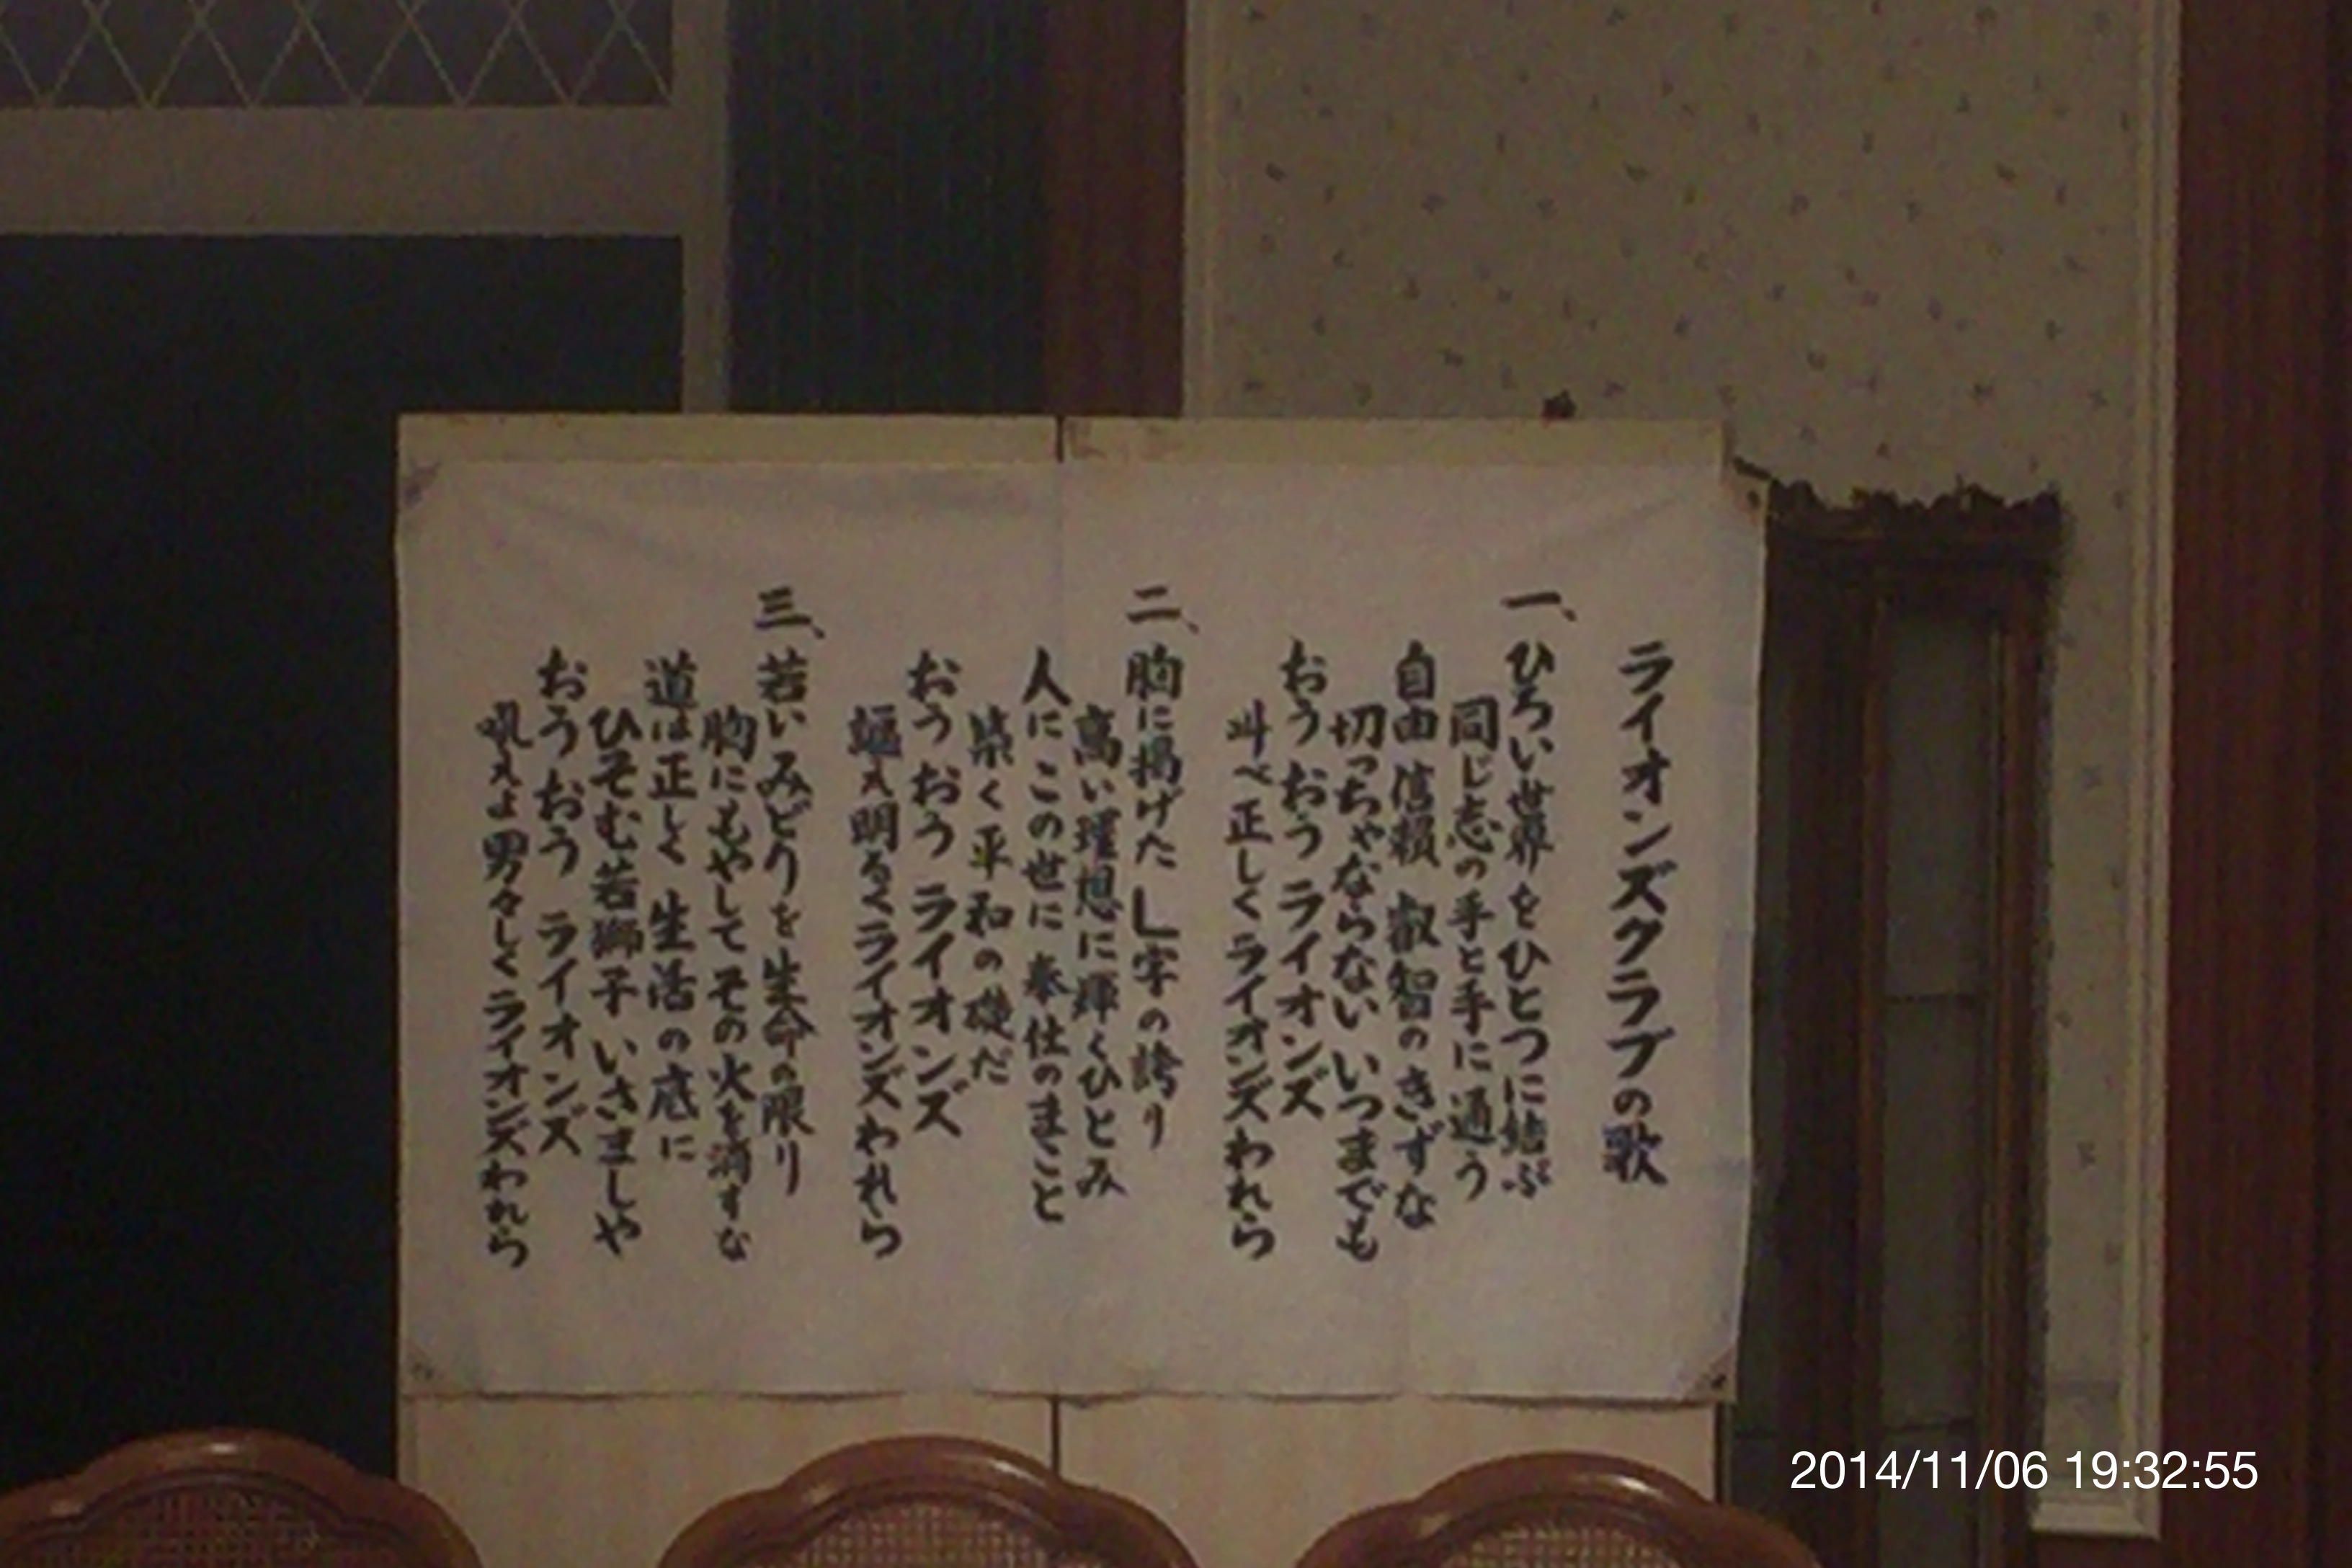 ライオンズクラブの歌
一、ひろい世界をひとつに結ぶ
同じ志の手と手に通う
自由 信頼 叡智のきずな
切っちゃならない いつまでも
おう おう ライオンズ
斗べ正しくライオンズわれら
二、胸に掲げたL字の誇り
高い理想に輝くひとみ
人にこの世に 奉仕のまこと
築く平和の礎だ
おう おう ライオンズ
謳え明るくライオンズわれら
三、若いみどりを生命の限り
胸にもやして その火を消すな
道は正しく 生活の底に
ひそむ若獅子 いさましや
おう おう ライオンズ
吼えよ男々しくライオンズわれら
2014/11/06 19:32:55